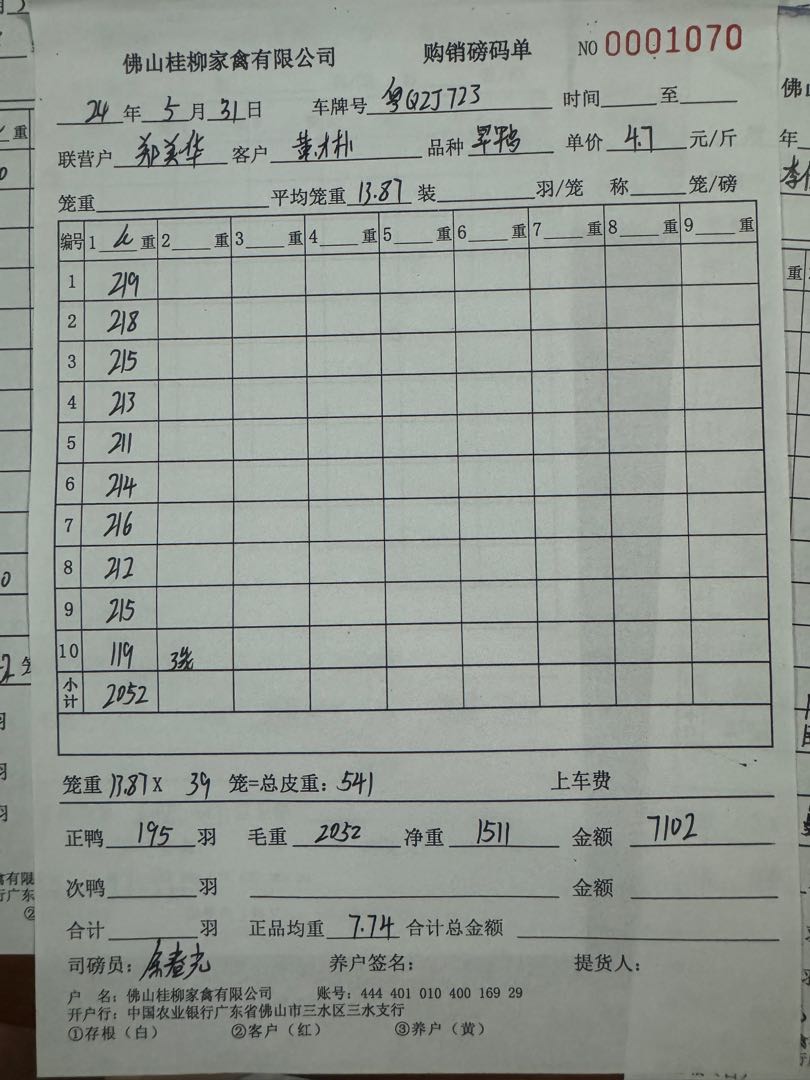 佛山桂柳家禽有限公司 购销磅码单 NO 0001070
24 年 5 月 31 日 车牌号 粤Q2J723 时间____至____
联营户 郑美华 客户 叶才朴 品种 旱鸭 单价 4.7 元/斤
笼重____平均笼重 13.87 装____羽/笼 称____笼/磅
编号 1 __ 重 2 __ 重 3 __ 重 4 __ 重 5 __ 重 6 __ 重 7 __ 重 8 __ 重 9 __ 重
1 219
2 218
3 215
4 213
5 211
6 214
7 216
8 212
9 215
10 119 3笼
小计 2052
笼重 13.87 X 39 笼=总皮重: 541 上车费
正鸭 195 羽 毛重 2052 净重 1511 金额 7102
次鸭____羽 ____ 金额____
合计____羽 正品均重 7.74 合计总金额____
司磅员: 养户签名: 提货人:
户 名: 佛山桂柳家禽有限公司 账号: 444 401 010 400 169 29
开户行: 中国农业银行广东省佛山市三水区三水支行
①存根（白） ②客户（红） ③养户（黄）